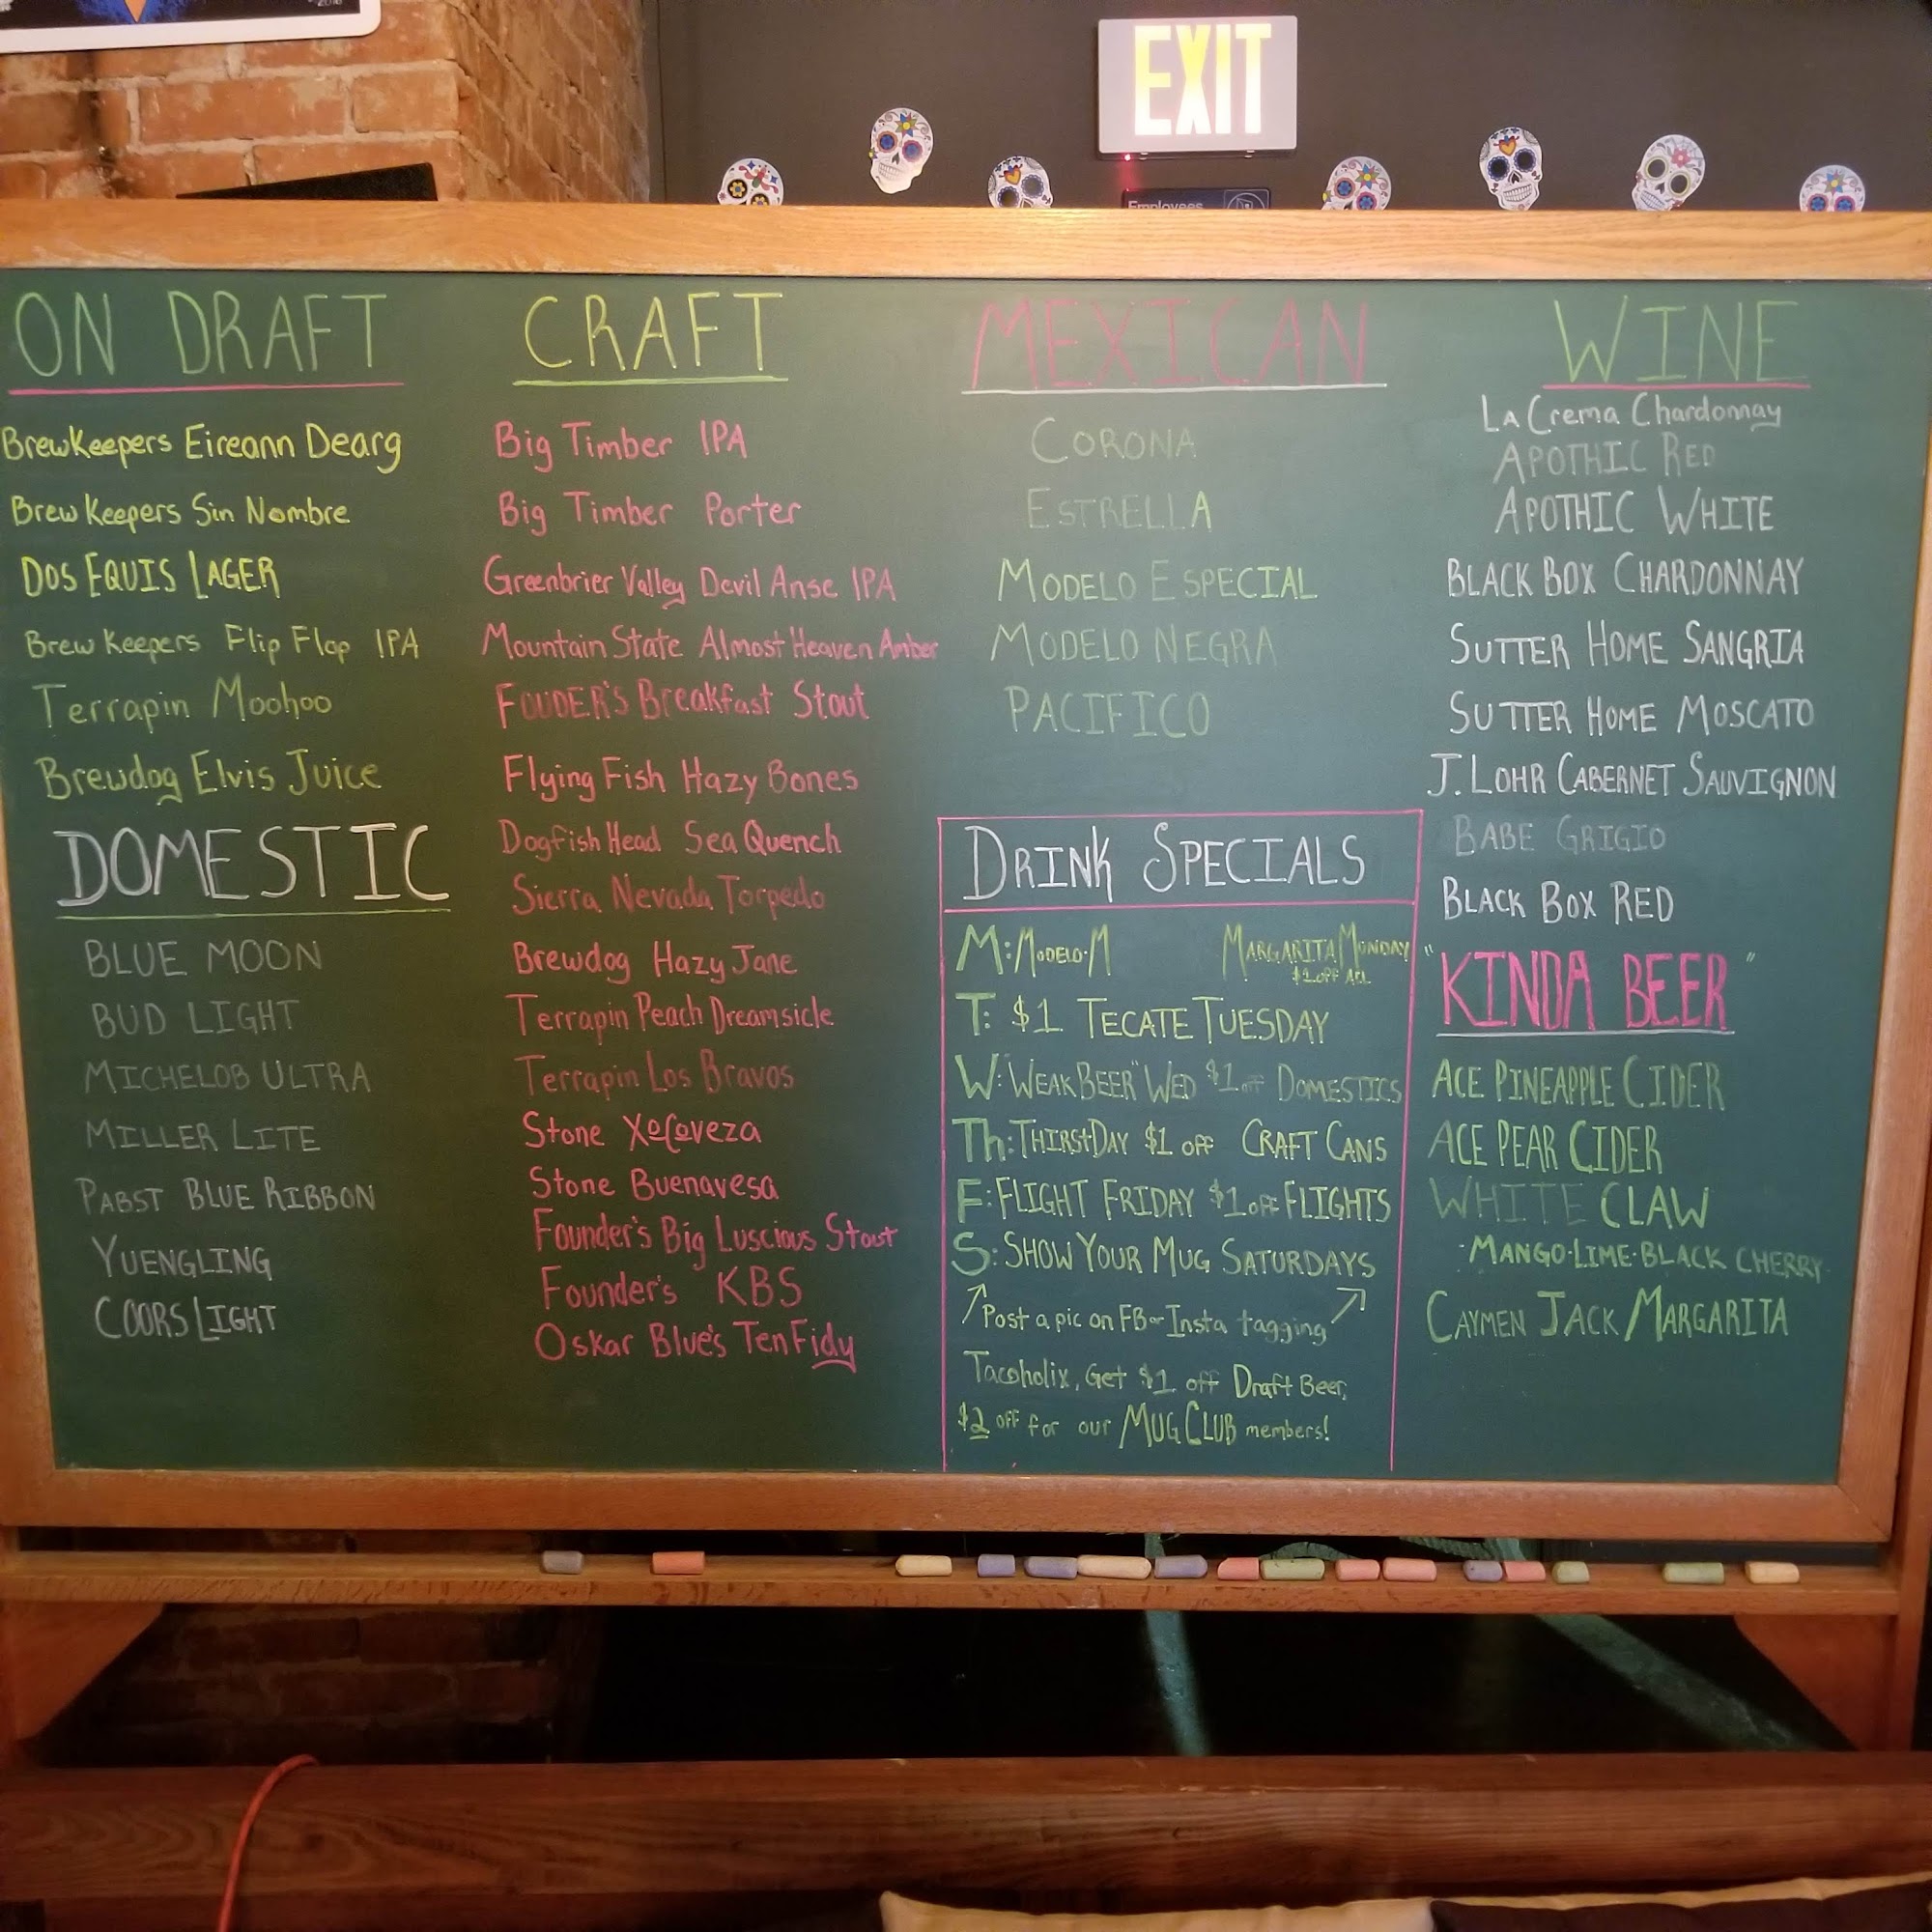 2018
EXIT
Employees
ON DRAFT
BrewKeepers Eireann Dearg
Brew Keepers Sin Nombre
DOS EQUIS LAGER
Brew Keepers Flip Flop IPA
Terrapin Moohoo
Brewdog Elvis Juice
DOMESTIC
BLUE MOON
BUD LIGHT
MICHELOB ULTRA
MILLER LITE
PABST BLUE RIBBON
YUENGLING
COORS LIGHT
CRAFT
Big Timber IPA
Big Timber Porter
Greenbrier Valley Devil Anse IPA
Mountain State Almost Heaven Amber
FOUDER'S Breakfast Stout
Flying Fish Hazy Bones
Dogfish Head Sea Quench
Sierra Nevada Torpedo
Brewdog Hazy Jane
Terrapin Peach Dreamsicle
Terrapin Los Bravos
Stone Xocoveza
Stone Buenavesa
Founder's Big Luscious Stout
Founder's KBS
Oskar Blue's TenFidy
MEXICAN
CORONA
ESTRELLA
MODELO ESPECIAL
MODELO NEGRA
PACIFICO
DRINK SPECIALS
M: MODELO·M MARGARITA MONDAY
$1 OFF ALL
T: $1 TECATE TUESDAY
W: "WEAK BEER" WED $1 off DOMESTICS
Th: THIRSTDAY $1 off CRAFT CANS
F: FLIGHT FRIDAY $1 off FLIGHTS
S: SHOW YOUR MUG SATURDAYS
Post a pic on FB or Insta tagging
Tacoholix, Get $1 off Draft Beer,
$2 off for our MUG CLUB members!
WINE
La Crema Chardonnay
APOTHIC RED
APOTHIC WHITE
BLACK BOX CHARDONNAY
SUTTER HOME SANGRIA
SUTTER HOME MOSCATO
J. LOHR CABERNET SAUVIGNON
BABE GRIGIO
BLACK BOX RED
"KINDA BEER"
ACE PINEAPPLE CIDER
ACE PEAR CIDER
WHITE CLAW
·MANGO·LIME·BLACK CHERRY·
CAYMEN JACK MARGARITA